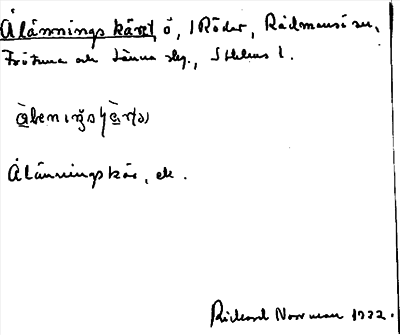 Ålänningskäret, ö, i Röder, Rådmansö sn,
Frötuna och Länna skg., Sthlms l.
Ålänningskär, ek.
Rickard Norrman 1922.